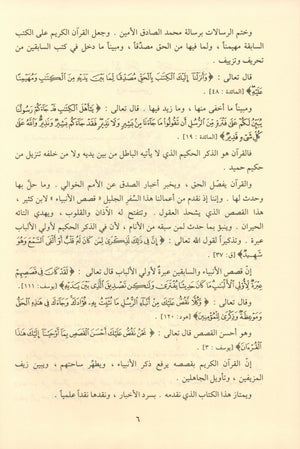 وختم الرسالات برسالة محمد الصادق الأمين . وجعل القرآن الكريم على الكتب
السابقة مهيمناً ، ولما فيها من الحق مصدّقاً ، ومبيناً ما دخل في كتب السابقين من
تحريف وتزييف .
قال تعالى : ﴿ وَأَنزَلْنَآ إِلَيْكَ الْكِتَابَ بِالْحَقِّ مُصَدِّقًا لِّمَا بَيْنَ يَدَيْهِ مِنَ الْكِتَابِ وَمُهَيْمِنًا
عَلَيْهِ ﴾ [المائدة : ٤٨] .
ومبيناً ما أخفى منها ، وما زيد فيها . قال تعالى : ﴿ يَا أَهْلَ الْكِتَابِ قَدْ جَاءَكُمْ رَسُولُنَا
يُبَيِّنُ لَكُمْ عَلَى فَتْرَةٍ مِّنَ الرُّسُلِ أَن تَقُولُوا مَا جَاءَنَا مِن بَشِيرٍ وَلَا نَذِيرٍ فَقَدْ جَاءَكُم بَشِيرٌ وَنَذِيرٌ وَاللَّهُ عَلَى
كُلِّ شَيْءٍ قَدِيرٌ ﴾ [المائدة : ١٩] .
فالقرآن هو الذكر الحكيم الذي لا يأتيه الباطل من بين يديه ولا من خلفه تنزيل من
حكيم حميد .
والقرآن يفصّل الحق ، ويخبر أخبار الصدق عن الأمم الخوالي . وما حلّ بها
وحدث لها . وإننا إذ نقدم من أعمالنا هذا السِّفر الجليل « قصص الأنبياء » لابن كثير ،
هذا القصص الذي يشحذ العقول . وتتفتح له الآذان والقلوب ، ويهدي التائه
الحيران . وينبئ بما حدث لمن سبقه من الأنام ، لأن في الذكر الحكيم لأولي الألباب
عبرة . وتذكيراً لقول الله تعالى : ﴿ إِنَّ فِي ذَلِكَ لَذِكْرَى لِمَن كَانَ لَهُ قَلْبٌ أَوْ أَلْقَى السَّمْعَ وَهُوَ
شَهِيدٌ ﴾ [ق : ٣٧] .
إنّ قصص الأنبياء والسابقين عبرةٌ لأولي الألباب قال تعالى : ﴿ لَقَدْ كَانَ فِي قَصَصِهِمْ
عِبْرَةٌ لِّأُولِي الْأَلْبَابِ مَا كَانَ حَدِيثًا يُفْتَرَى وَلَكِن تَصْدِيقَ الَّذِي بَيْنَ يَدَيْهِ ﴾ [يوسف : ١١١] .
وقال تعالى : ﴿ وَكُلًّا نَّقُصُّ عَلَيْكَ مِنْ أَنبَاءِ الرُّسُلِ مَا نُثَبِّتُ بِهِ فُؤَادَكَ وَجَاءَكَ فِي هَذِهِ الْحَقُّ
وَمَوْعِظَةٌ وَذِكْرَى لِلْمُؤْمِنِينَ ﴾ [هود : ١٢٠] .
وهو أحسن القصص قال تعالى : ﴿ نَحْنُ نَقُصُّ عَلَيْكَ أَحْسَنَ الْقَصَصِ بِمَا أَوْحَيْنَا إِلَيْكَ هَذَا
الْقُرْآنَ ﴾ [يوسف : ٣] .
إنّ القرآن الكريم بقصصه يرفع ذكر الأنبياء ، ويطهّر ساحتهم ، ويبين زيف
المزيفين ، وتأويل الجاهلين .
ويمتاز هذا الكتاب الذي نقدمه . بسرد الأخبار ، ونقدها نقداً علمياً .
٦